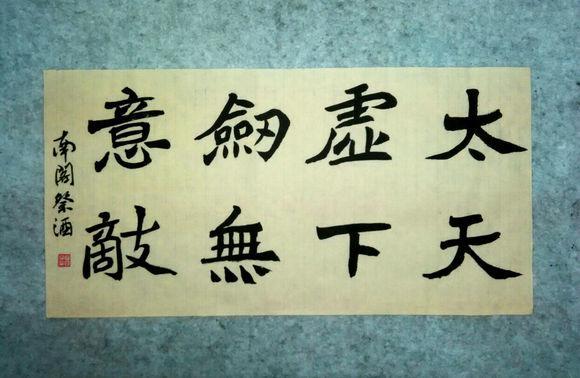 太虛劒意
天下無敵
南閣祭酒